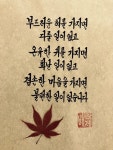 부드러운 혀를 가지면
다툴 일이 없고
온유한 귀를 가지면
화날 일이 없고
겸손한 마음을 가지면
불편한 일이 없습니다